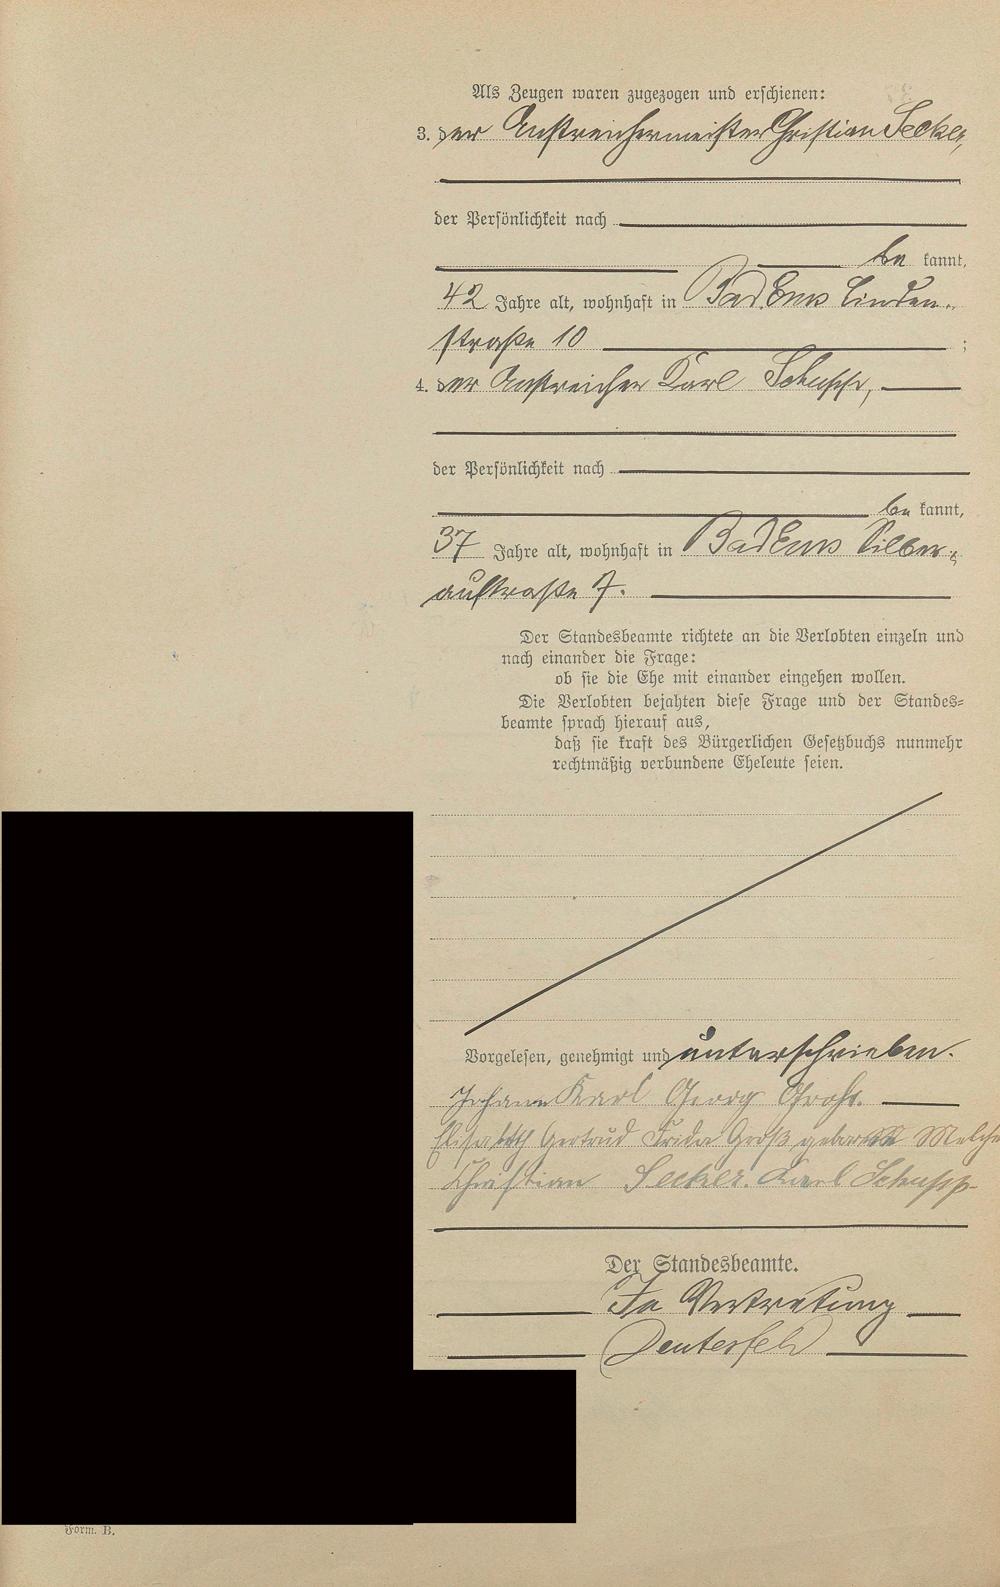 Als Zeugen waren zugezogen und erschienen:
3. der Anstreichermeister Christian Secker,
der Persönlichkeit nach
be kannt,
42 Jahre alt, wohnhaft in Bad Ems Linden-
straße 10 ;
4. der Anstreicher Karl Schupp,
der Persönlichkeit nach
be kannt,
37 Jahre alt, wohnhaft in Bad Ems Silber-
austraße 7.
Der Standesbeamte richtete an die Verlobten einzeln und
nach einander die Frage:
ob sie die Ehe mit einander eingehen wollen.
Die Verlobten bejahten diese Frage und der Standes-
beamte sprach hierauf aus,
daß sie kraft des Bürgerlichen Gesetzbuchs nunmehr
rechtmäßig verbundene Eheleute seien.
Vorgelesen, genehmigt und unterschrieben.
Johann Karl Georg Groß.
Elisabeth Gertrud Frida Groß
Christian Secker. Karl Schupp
Der Standesbeamte.
In Vertretung
Form. B.